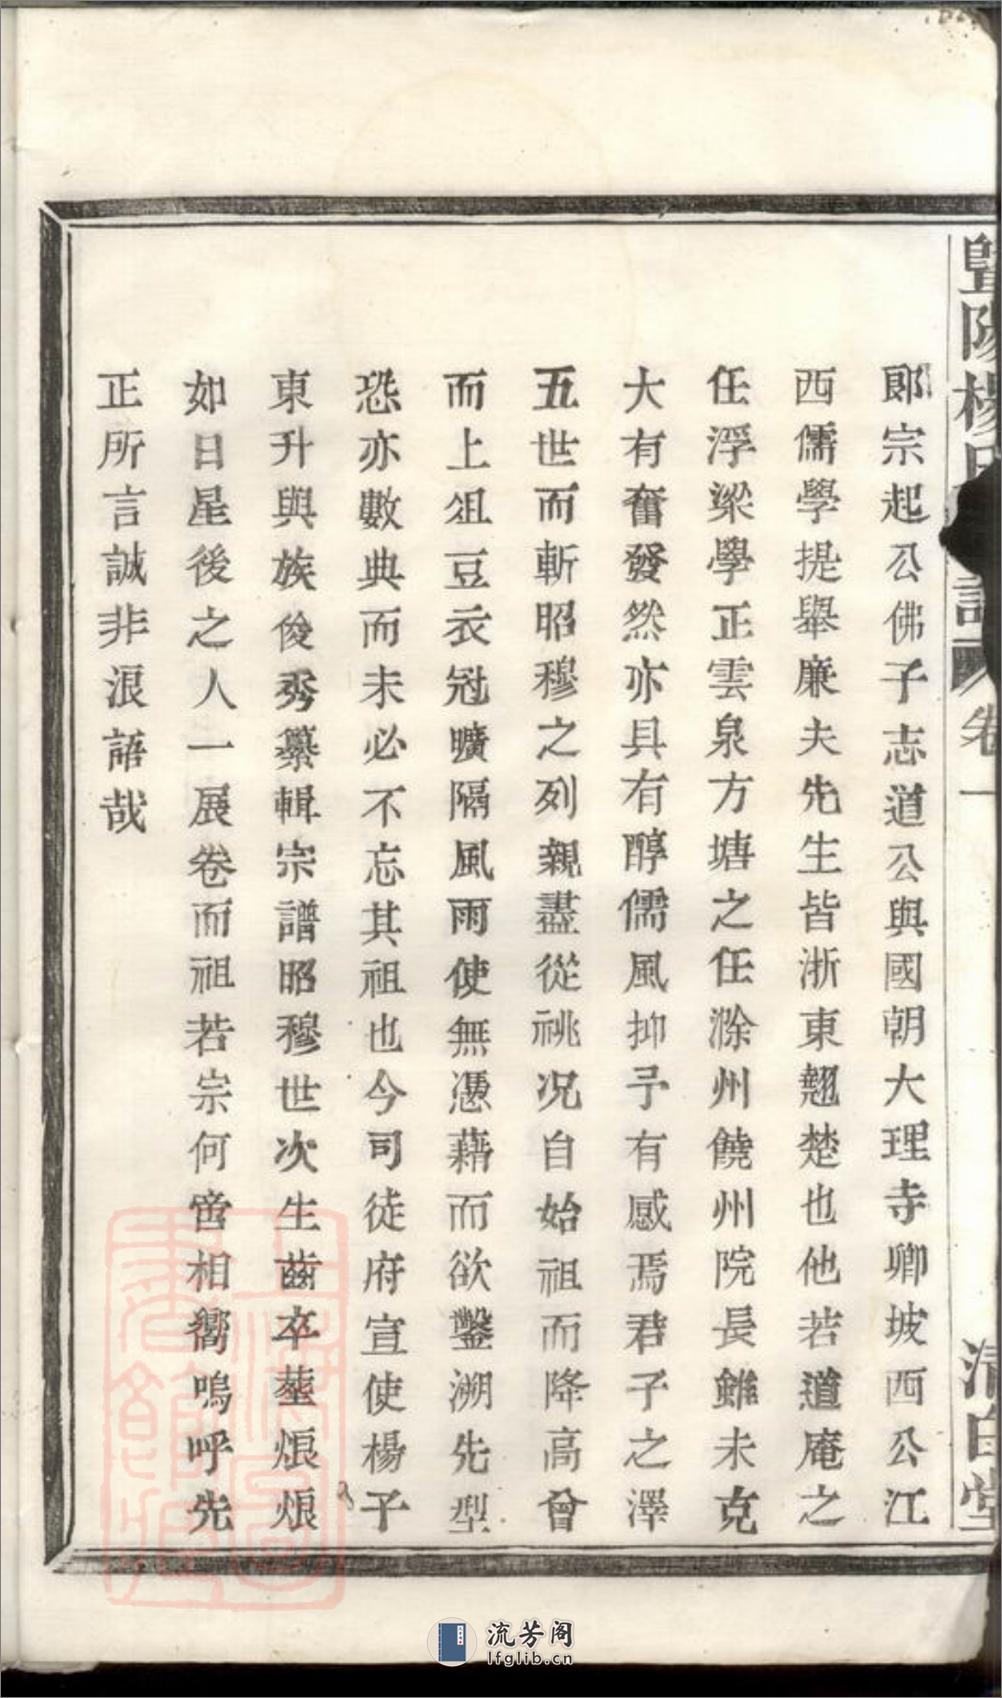 暨陽楊氏
卷一
清白堂
郎宗起公佛子志道公與國朝大理寺卿坡西公江
西儒學提舉廉夫先生皆浙東翹楚也他若道庵之
任浮梁學正雲泉方塘之任滁州饒州院長雖未克
大有奮發然亦具有醇儒風抑予有感焉君子之澤
五世而斬昭穆之列親盡從祧况自始祖而降高曾
而上俎豆衣冠曠隔風雨使無憑藉而欲鑿溯先型
恐亦數典而未必不忘其祖也今司徒府宣使楊子
東升與族俊秀纂輯宗譜昭穆世次生齒卒塟烺烺
如日星後之人一展卷而祖若宗何啻相嚮嗚呼先
正所言誠非浪語哉
流芳阁
lfglib.cn